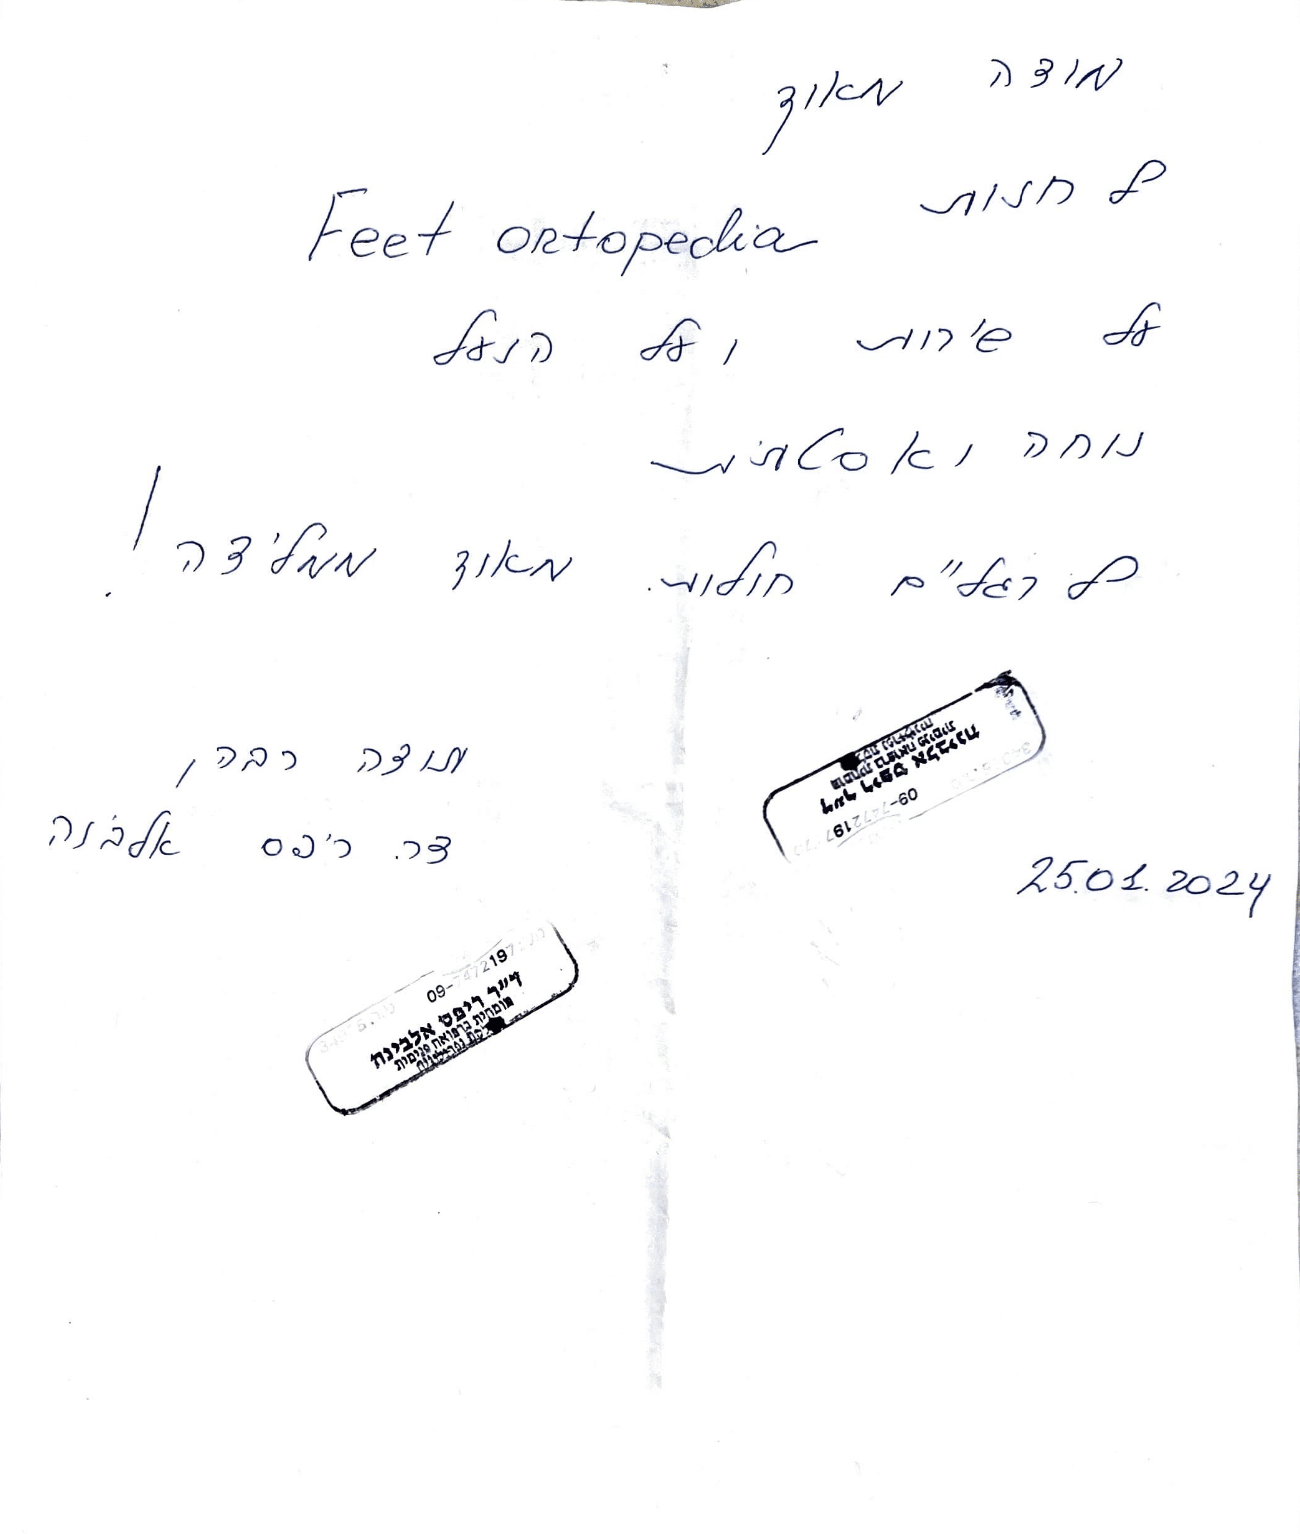 מודה מאוד
ל חנות Feet ortopedia
על שירות ועל הנעל
נוחה ואסטתית
ל רגליים חולות. מאוד ממליצה!
תודה רבה,
דר. ריפס אלבינה
25.01.2024
ד"ר ריפס אלבינה
מומחית ברפואה פנימית
09-7472197
09-7472197
ד"ר ריפס אלבינה
מומחית ברפואה פנימית